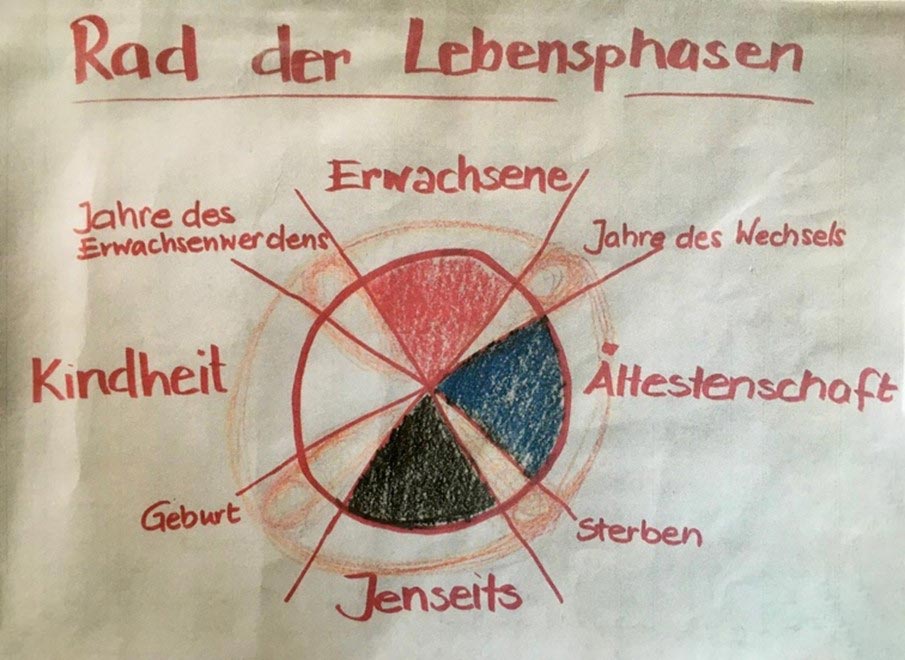 Rad der Lebensphasen
Erwachsene
Jahre des
Erwachsenwerdens
Jahre des Wechsels
Kindheit
Ältestenschaft
Geburt
Sterben
Jenseits